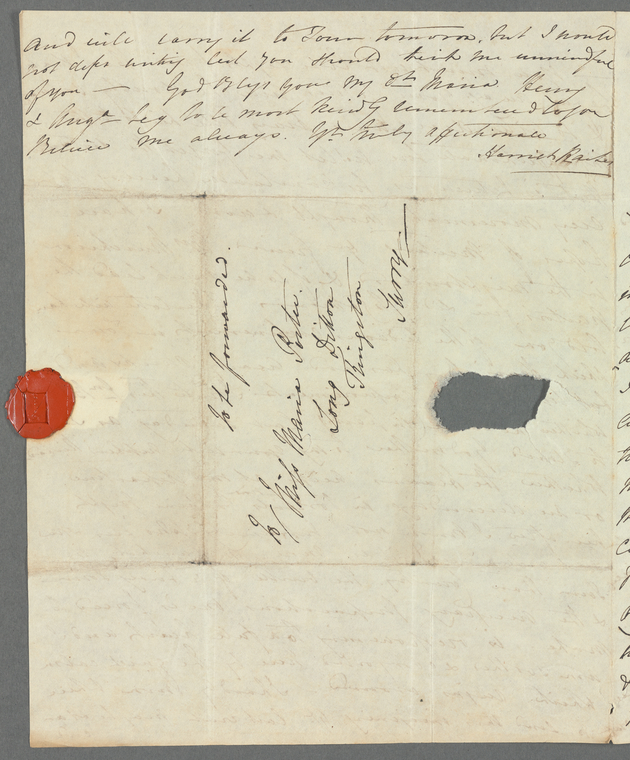 and will carry it to Town tomorow, but I would
not defer writing lest you should think me unmindful
of you — God Bless you My Dr Maria Henry
& Augta beg to be most kindly remembered to you
Believe me always Yrs truly affectionate
Harriet
To be forwarded.
To / Miss Maria Porter.
Long Ditton
Kingston
Surry —